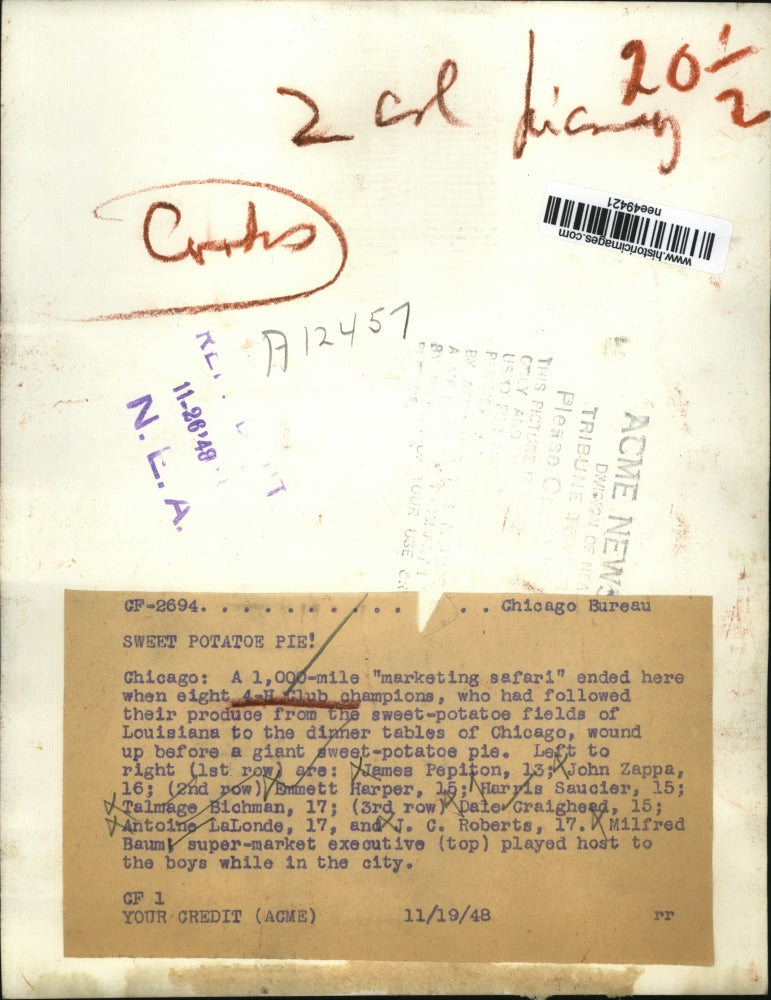 20 1/2
2 col
www.historicimages.com
nee49421
A12457
11-26-48
N. E. A.
ACME NEWS
TRIBUNE TO
Please
THIS PICTURE IS
ONLY AND
USED FOR
YOUR USE
CF-2694. . . . . . . . . . . . . . Chicago Bureau
SWEET POTATOE PIE!
Chicago: A 1,000-mile "marketing safari" ended here
when eight 4-H Club champions, who had followed
their produce from the sweet-potatoe fields of
Louisiana to the dinner tables of Chicago, wound
up before a giant sweet-potatoe pie. Left to
right (1st row) are: James Pepiton, 13; John Zappa,
16; (2nd row) Emmett Harper, 15; Harris Saucier, 15;
Talmage Bichman, 17; (3rd row) Dale Craighead, 15;
Antoine LaLonde, 17, and J. C. Roberts, 17. Milfred
Baum, super-market executive (top) played host to
the boys while in the city.
CF 1
YOUR CREDIT (ACME) 11/19/48 rr